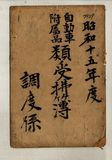 昭和十五年度
自動車
附属品
類受拂簿
調度係